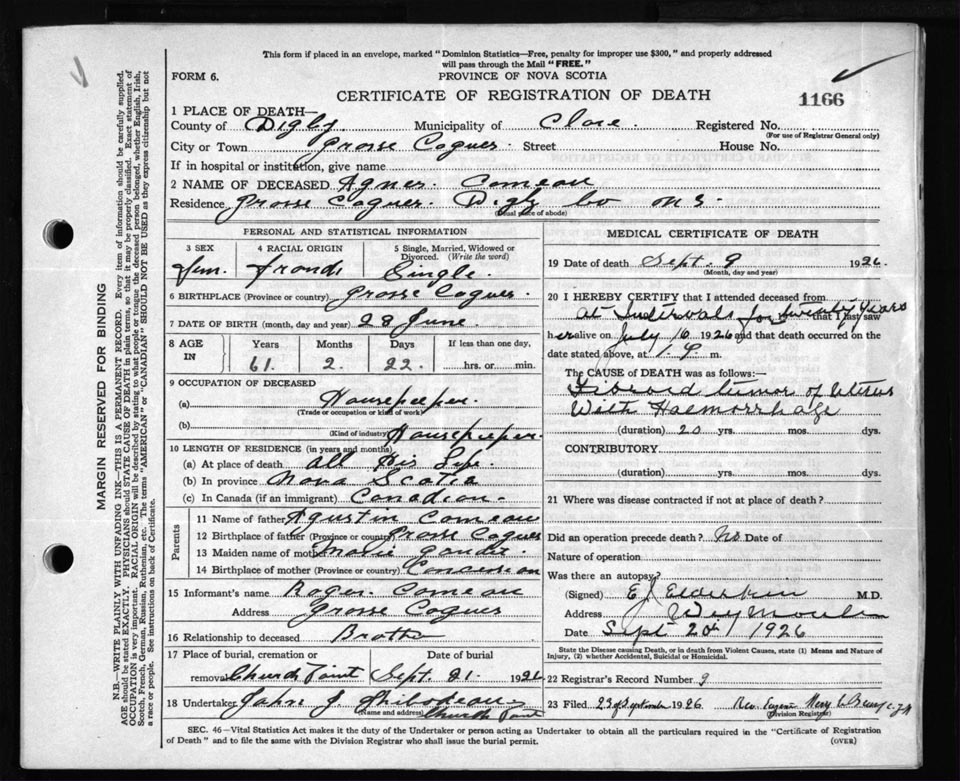 This form if placed in an envelope, marked "Dominion Statistics—Free, penalty for improper use $300," and properly addressed
will pass through the Mail "FREE."
FORM 6.
PROVINCE OF NOVA SCOTIA
CERTIFICATE OF REGISTRATION OF DEATH
1166
MARGIN RESERVED FOR BINDING
N.B.—WRITE PLAINLY WITH UNFADING INK—THIS IS A PERMANENT RECORD. Every item of information should be carefully supplied.
AGE should be stated EXACTLY. PHYSICIANS should STATE CAUSE OF DEATH in plain terms, so that it may be properly classified. Exact statement of
OCCUPATION is very important. RACIAL ORIGIN will be described by stating to what people or tongue the deceased person belonged, whether English, Irish,
Scotch, French, German, Russian, Ruthenian, etc. The terms "AMERICAN" or "CANADIAN" SHOULD NOT BE USED as they express citizenship but not
a race or people. See instructions on back of Certificate.
1 PLACE OF DEATH—
County of Digby Municipality of Clare Registered No.
(For use of Registrar General only)
City or Town Grosse Coques Street House No.
If in hospital or institution, give name
2 NAME OF DECEASED Agnes Comeau
Residence Grosse Coques Digby Co N S.
(Usual place of abode)
PERSONAL AND STATISTICAL INFORMATION
3 SEX 4 RACIAL ORIGIN 5 Single, Married, Widowed or
Divorced. (Write the word)
Fem. Single.
6 BIRTHPLACE (Province or country) Grosse Coques
7 DATE OF BIRTH (month, day and year) 28 June
8 AGE IN Years Months Days If less than one day,
61 2 22 hrs. or min.
9 OCCUPATION OF DECEASED
(a) Housekeeper.
(Trade or occupation or kind of work)
(b) Housekeeper.
(Kind of industry)
10 LENGTH OF RESIDENCE (in years and months)
(a) At place of death All
(b) In province Nova Scotia
(c) In Canada (if an immigrant) Canadian.
Parents
11 Name of father Agustin Comeau
12 Birthplace of father (Province or country) Grosse Coques
13 Maiden name of mother
14 Birthplace of mother (Province or country) Concession
15 Informant's name Roger Comeau
Address Grosse Coques
16 Relationship to deceased Brother
17 Place of burial, cremation or Date of burial
removal Church Point Sept. 21. 1926
18 Undertaker John J.
(Name and address) Church Point
MEDICAL CERTIFICATE OF DEATH
19 Date of death Sept. 9 1926.
(Month, day and year)
20 I HEREBY CERTIFY that I attended deceased from
At Intervals for twenty years that I last saw
her alive on July 10 1926 and that death occurred on the
date stated above, at m.
The CAUSE OF DEATH was as follows:—
Fibroid tumor of Uterus
With Haemorrhage
(duration) 20 yrs. mos. dys.
CONTRIBUTORY
(duration) yrs. mos. dys.
21 Where was disease contracted if not at place of death?
Did an operation precede death? No Date of
Nature of operation
Was there an autopsy?
(Signed) E J Elderkin M.D.
Address Weymouth
Date Sept 20th 1926
State the Disease causing Death, or in death from Violent Causes, state (1) Means and Nature of
Injury, (2) whether Accidental, Suicidal or Homicidal.
22 Registrar's Record Number 9
23 Filed 23 of September 1926 Rev. Eugene
(Division Registrar)
SEC. 46—Vital Statistics Act makes it the duty of the Undertaker or person acting as Undertaker to obtain all the particulars required in the "Certificate of Registration
of Death" and to file the same with the Division Registrar who shall issue the burial permit.
(OVER)